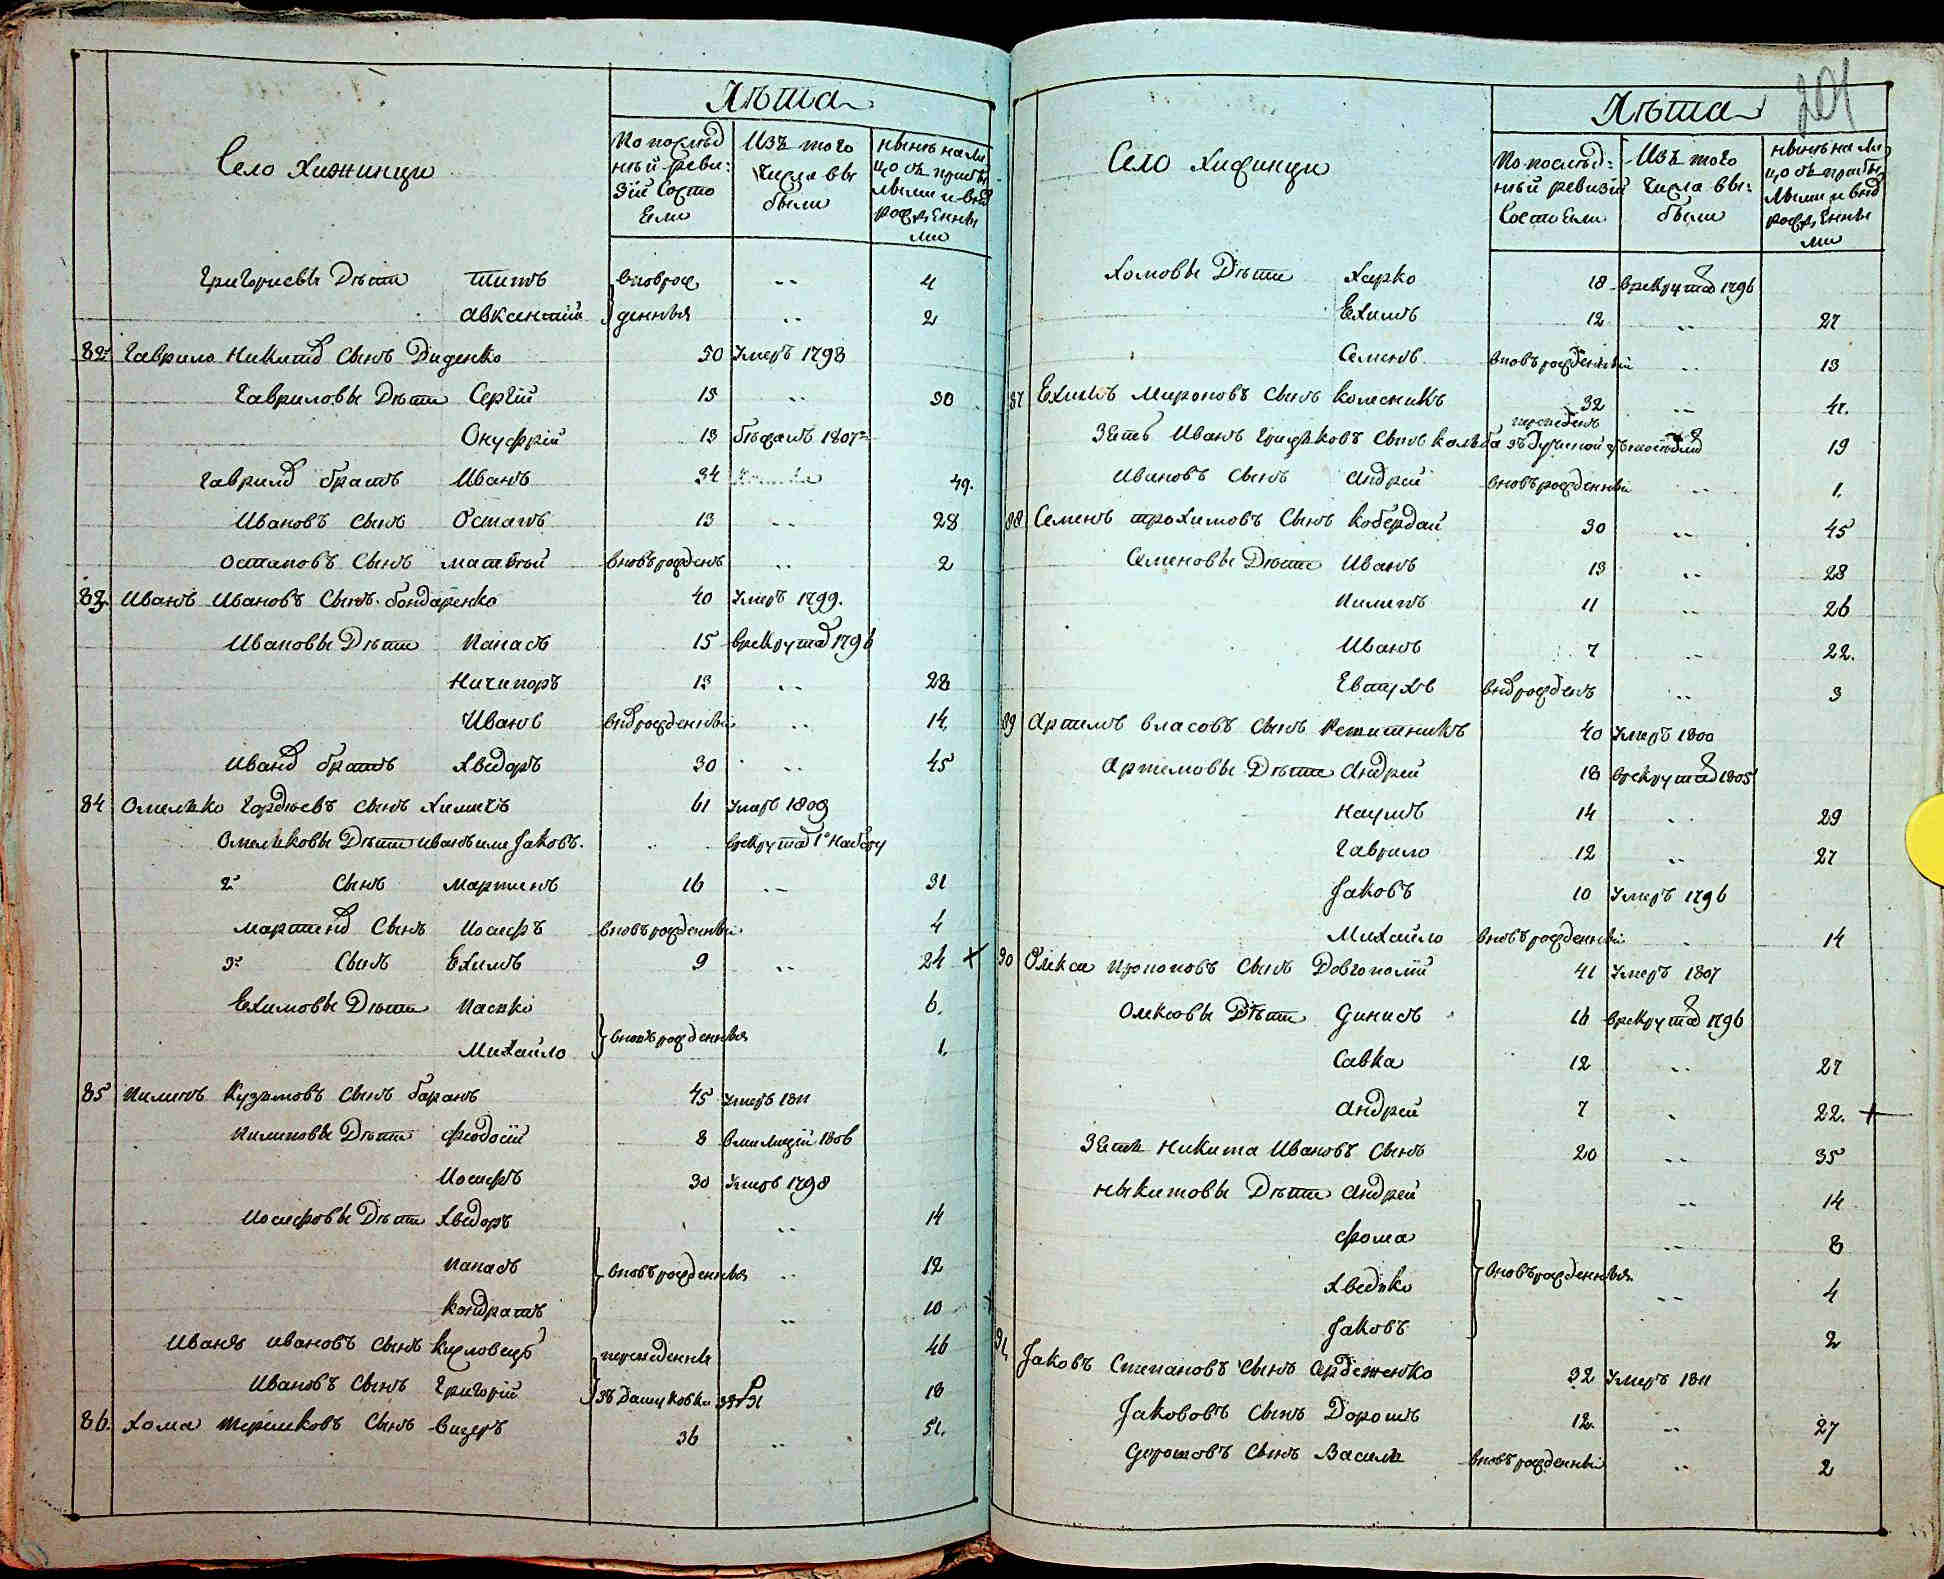 Лѣта
Село Хижинци
По послѣд
ней реви:
зіи состо
яли
Изъ того
числа вы
были
нынѣ на ли
цо съ прибы
лыми и внов
рожденны
ми
Григориевы Дѣти Титъ вновро 4
Авксентій жденныя 2
82 Гаврило Никитов Сынъ Диденко 50 Умеръ 1798
Гавриловы Дѣти Сергій 15 30
Онуфрій 13 бѣжалъ 1807
Гаврилов братъ Иванъ 34 49.
Ивановъ сынъ Остапъ 13 28
Остаповъ Сынъ Матвѣй вновърожденъ 2
83. Иванъ Ивановъ Сынъ бондаренко 40 Умеръ 1799.
Ивановы Дѣти Панасъ 15 врекрутах 1796
Ничипоръ 13 28
Иванъ внврожденный 14
Иванов братъ Хведоръ 30 45
84 Омелько Гордѣевъ сынъ Химичъ 61 Умеръ 1809
Омельковы Дѣти Иванъ или Яковъ. врекрутах 1º Набору
2й Сынъ Мартинъ 16 31
Мартинов Сынъ Иосифъ вновърожденный 4
3й Сынъ Ехимъ 9 24 +
Ехимовы Дѣти Пасько 6.
Михайло вновърожденныя 1.
85 Пилипъ Кузьмовъ Сынъ баранъ 45 Умеръ 1811
Пилиповы Дѣти Феодосій 8 вмилиціи 1806
Иосифъ 30 Умеръ 1798
Иосифовы Дѣти Хведоръ 14
Панасъ вновърожденныя 12
Кондратъ 10
Иванъ Ивановъ сынъ 46
Ивановъ Сынъ Григорій зъ Дашуковки 18
86. Хома Терешковъ Сынъ 36 51.
201
Лѣта
Село Хижинци
По послѣд:
ней ревизіи
состояли
Изъ того
числа вы:
были
нынѣ на ли
цо съ прибы
лыми и внов
рожденны
ми
Хомовы Дѣти Харко 18 врекрутах 1796
Ехимъ 12 27
Семенъ вновърожденный 13
87 Ехимъ Мироновъ Сынъ Колесникъ 32 47.
Зять Иванъ Грицьковъ Сынъ 19
Ивановъ Сынъ Андрей вновърожденный 1.
88 Семенъ Трохимовъ Сынъ Кобердай 30 45
Семеновы Дѣти Иванъ 13 28
Пилипъ 11 26
Иванъ 7 22.
Евтухъ внврожденъ 3
89 Артемъ Власовъ Сынъ 40 Умеръ 1800
Артемовы Дѣти Андрей 18 врекрутах 1805
Наумъ 14 29
Гаврило 12 27
Яковъ 10 Умеръ 1796
Михайло вновърожденный 14
90 Олекса Прокоповъ Сынъ Довгополій 41 Умеръ 1807
Олексовы Дѣти Динисъ 16 врекрутах 1796
Савка 12 27
Андрей 7 22. +
Зять Никита Ивановъ Сынъ 20 35
Ныкитовы Дѣти Андрей 14
Фома 8
Хведько вновърожденныя 4
Яковъ 2
91 Яковъ Степановъ Сынъ 32 Умеръ 1811
Якововъ Сынъ Дорошъ 12. 27
Дорошовъ Сынъ Василь вновърожденный 2